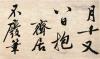 月十又
八日抱
齋居
不廢筆